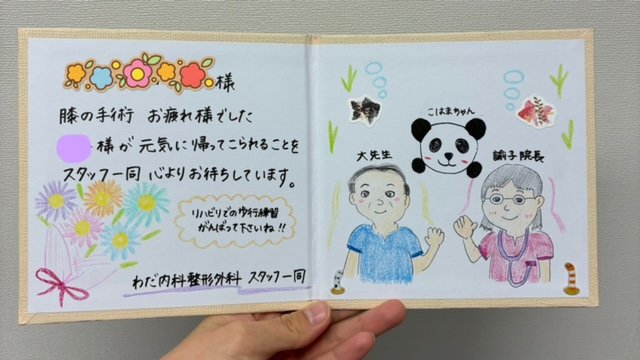 様
膝の手術 お疲れ様でした
様が 元気に帰ってこられることを
スタッフ一同 心よりお待ちしています。
リハビリでの歩行練習
がんばって下さいね!!
わだ内科整形外科 スタッフ一同
こはまちゃん
大先生
諭子院長